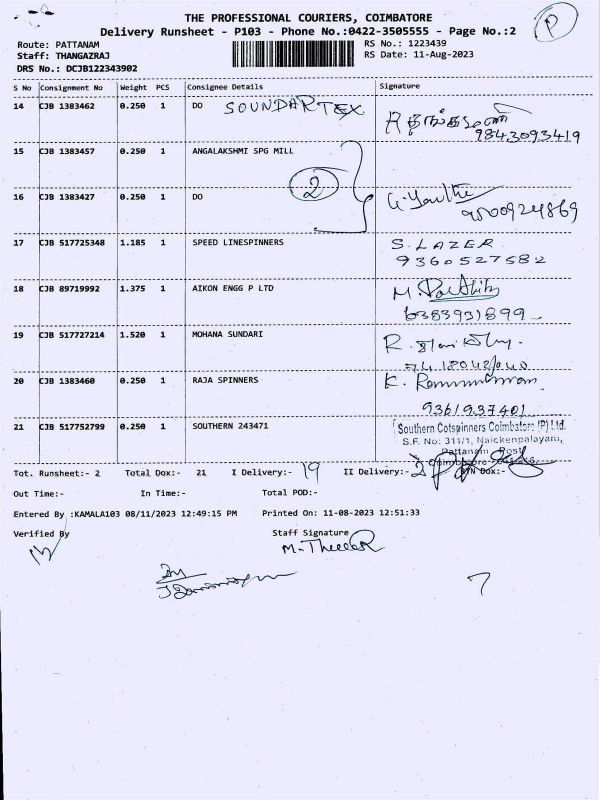 THE PROFESSIONAL COURIERS, COIMBATORE
Delivery Runsheet - P103 - Phone No.:0422-3505555 - Page No.:2
P
Route: PATTANAM
RS No.: 1223439
Staff: THANGAZRAJ
RS Date: 11-Aug-2023
DRS No.: DCJB122343902
S No Consignment No Weight PCS Consignee Details Signature
14 CJB 1383462 0.250 1 DO SOUNDAR TEX
9843093419
15 CJB 1383457 0.250 1 ANGALAKSHMI SPG MILL
2
16 CJB 1383427 0.250 1 DO
9500924869
17 CJB 517725348 1.185 1 SPEED LINESPINNERS S. LAZER
9360527582
18 CJB 89719992 1.375 1 AIKON ENGG P LTD
6383931899
19 CJB 517727214 1.520 1 MOHANA SUNDARI
20 CJB 1383460 0.250 1 RAJA SPINNERS
9361937401
21 CJB 517752799 0.250 1 SOUTHERN 243471 Southern Cotspinners Coimbatore (P) Ltd.
S.F. No: 311/1, Naickenpalayam,
Pattanam Post
Tot. Runsheet:- 2 Total Dox:- 21 I Delivery:- 19 II Delivery:- 2
Out Time:- In Time:- Total POD:-
Entered By :KAMALA103 08/11/2023 12:49:15 PM Printed On: 11-08-2023 12:51:33
Verified By Staff Signature
7